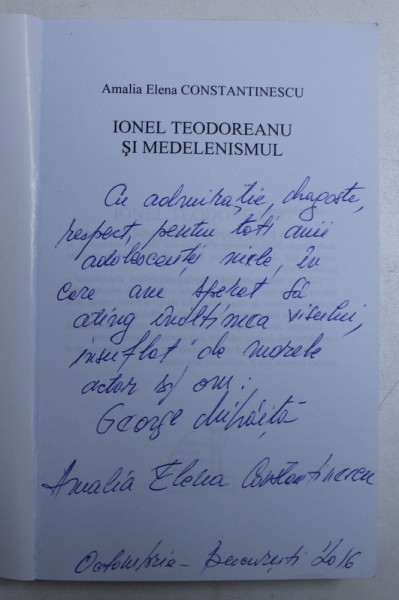 Amalia Elena CONSTANTINESCU
IONEL TEODOREANU
ȘI MEDELENISMUL
Cu admirație, dragoste,
respect, pentru toți anii
adolescenței mele, în
care am sperat să
ating înălțimea visului,
insuflat de marele
actor și om:
George Mihăiță
Amalia Elena Constantinescu
Octombrie - București 2016